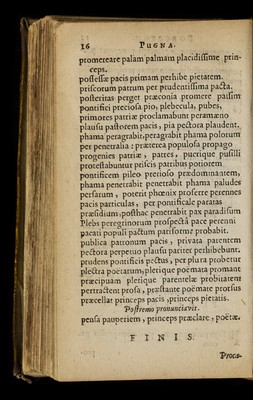 16 PUGNA.
promereare palam palmam placidissime prin-
ceps.
possessæ pacis primam perhibe pietatem.
priscorum patrum per prudentissima pacta.
posteritas perget præconia promere passim
pontifici preciosa pio, plebecula, pubes,
primores patriæ proclamabunt peramœno
plausu pastorem pacis, pia pectora plaudent.
phama peragrabit, peragrabit phama polorum
per penetralia: præterea populosa propago
progenies patriæ, patres, puerique pusilli
protestabuntur priscis partibus potiorem
pontificem pileo precioso prædominantem,
phama penetrabit penetrabit phama paludes
persarum, poterit phœnix proferre perennes
pacis particulas, per pontificale paratas
præsidium, posthac penetrabit pax paradisum
Plebs peregrinorum prospectâ pace perenni
pacati populi pactum pariforme probabit.
publica patronum pacis, privata parentem
pectora perpetuo plausu pariter perhibebunt.
prudens pontificis pectus, per plura probetur
plectra poëtarum, plerique poëmata promant
præcipuam plerique parentelæ probitatem
pertractent prosa, præstante poëmate prorsus
præcellat princeps pacis, princeps pietatis.
Postremo pronunciavit.
pensa pauperiem, princeps præclare, poëtæ.
FINIS.
Proca-